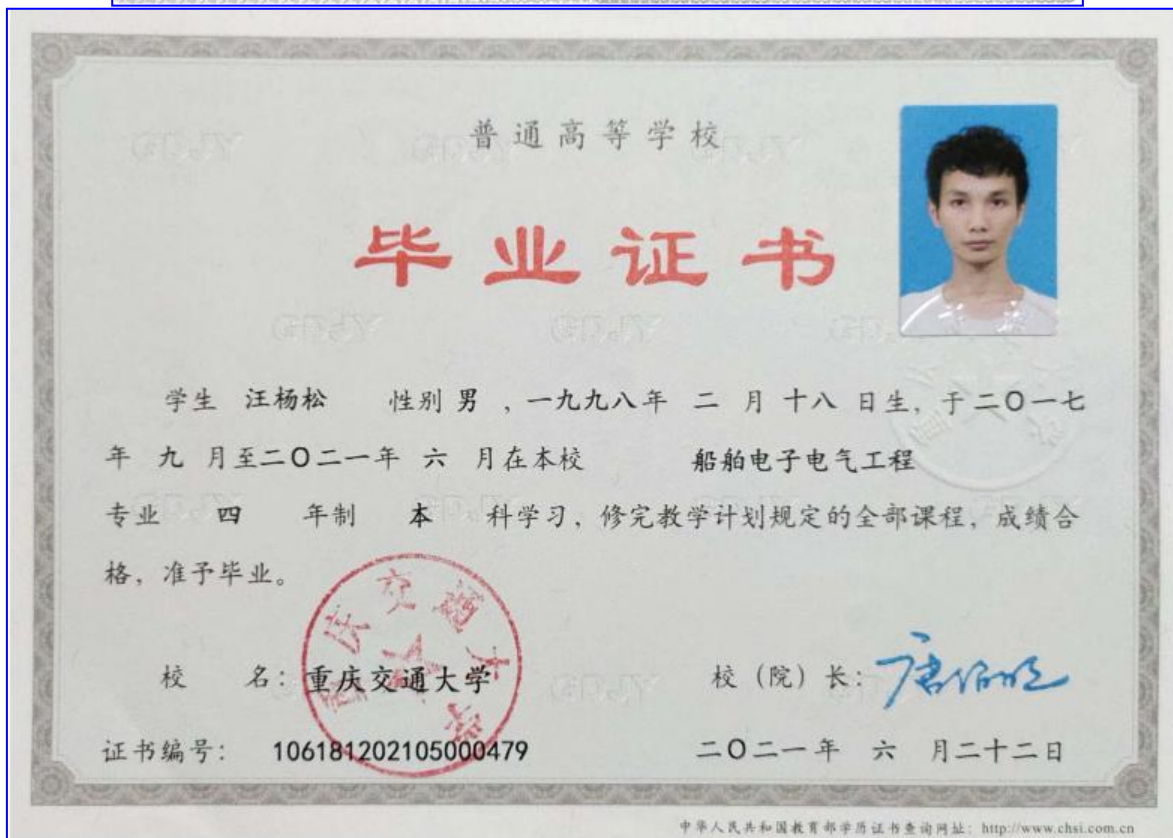 普通高等学校
毕业证书
学生 汪杨松 性别 男 ,一九九八年 二 月 十八 日生, 于二〇一七
年 九 月至二〇二一年 六 月在本校 船舶电子电气工程
专业 四 年制 本 科学习, 修完教学计划规定的全部课程, 成绩合
格, 准予毕业。
校 名: 重庆交通大学
校 (院) 长: 唐伯明
重庆交通大学
证书编号: 106181202105000479
二〇二一年 六 月二十二日
中华人民共和国教育部学历证书查询网址: http://www.chsi.com.cn